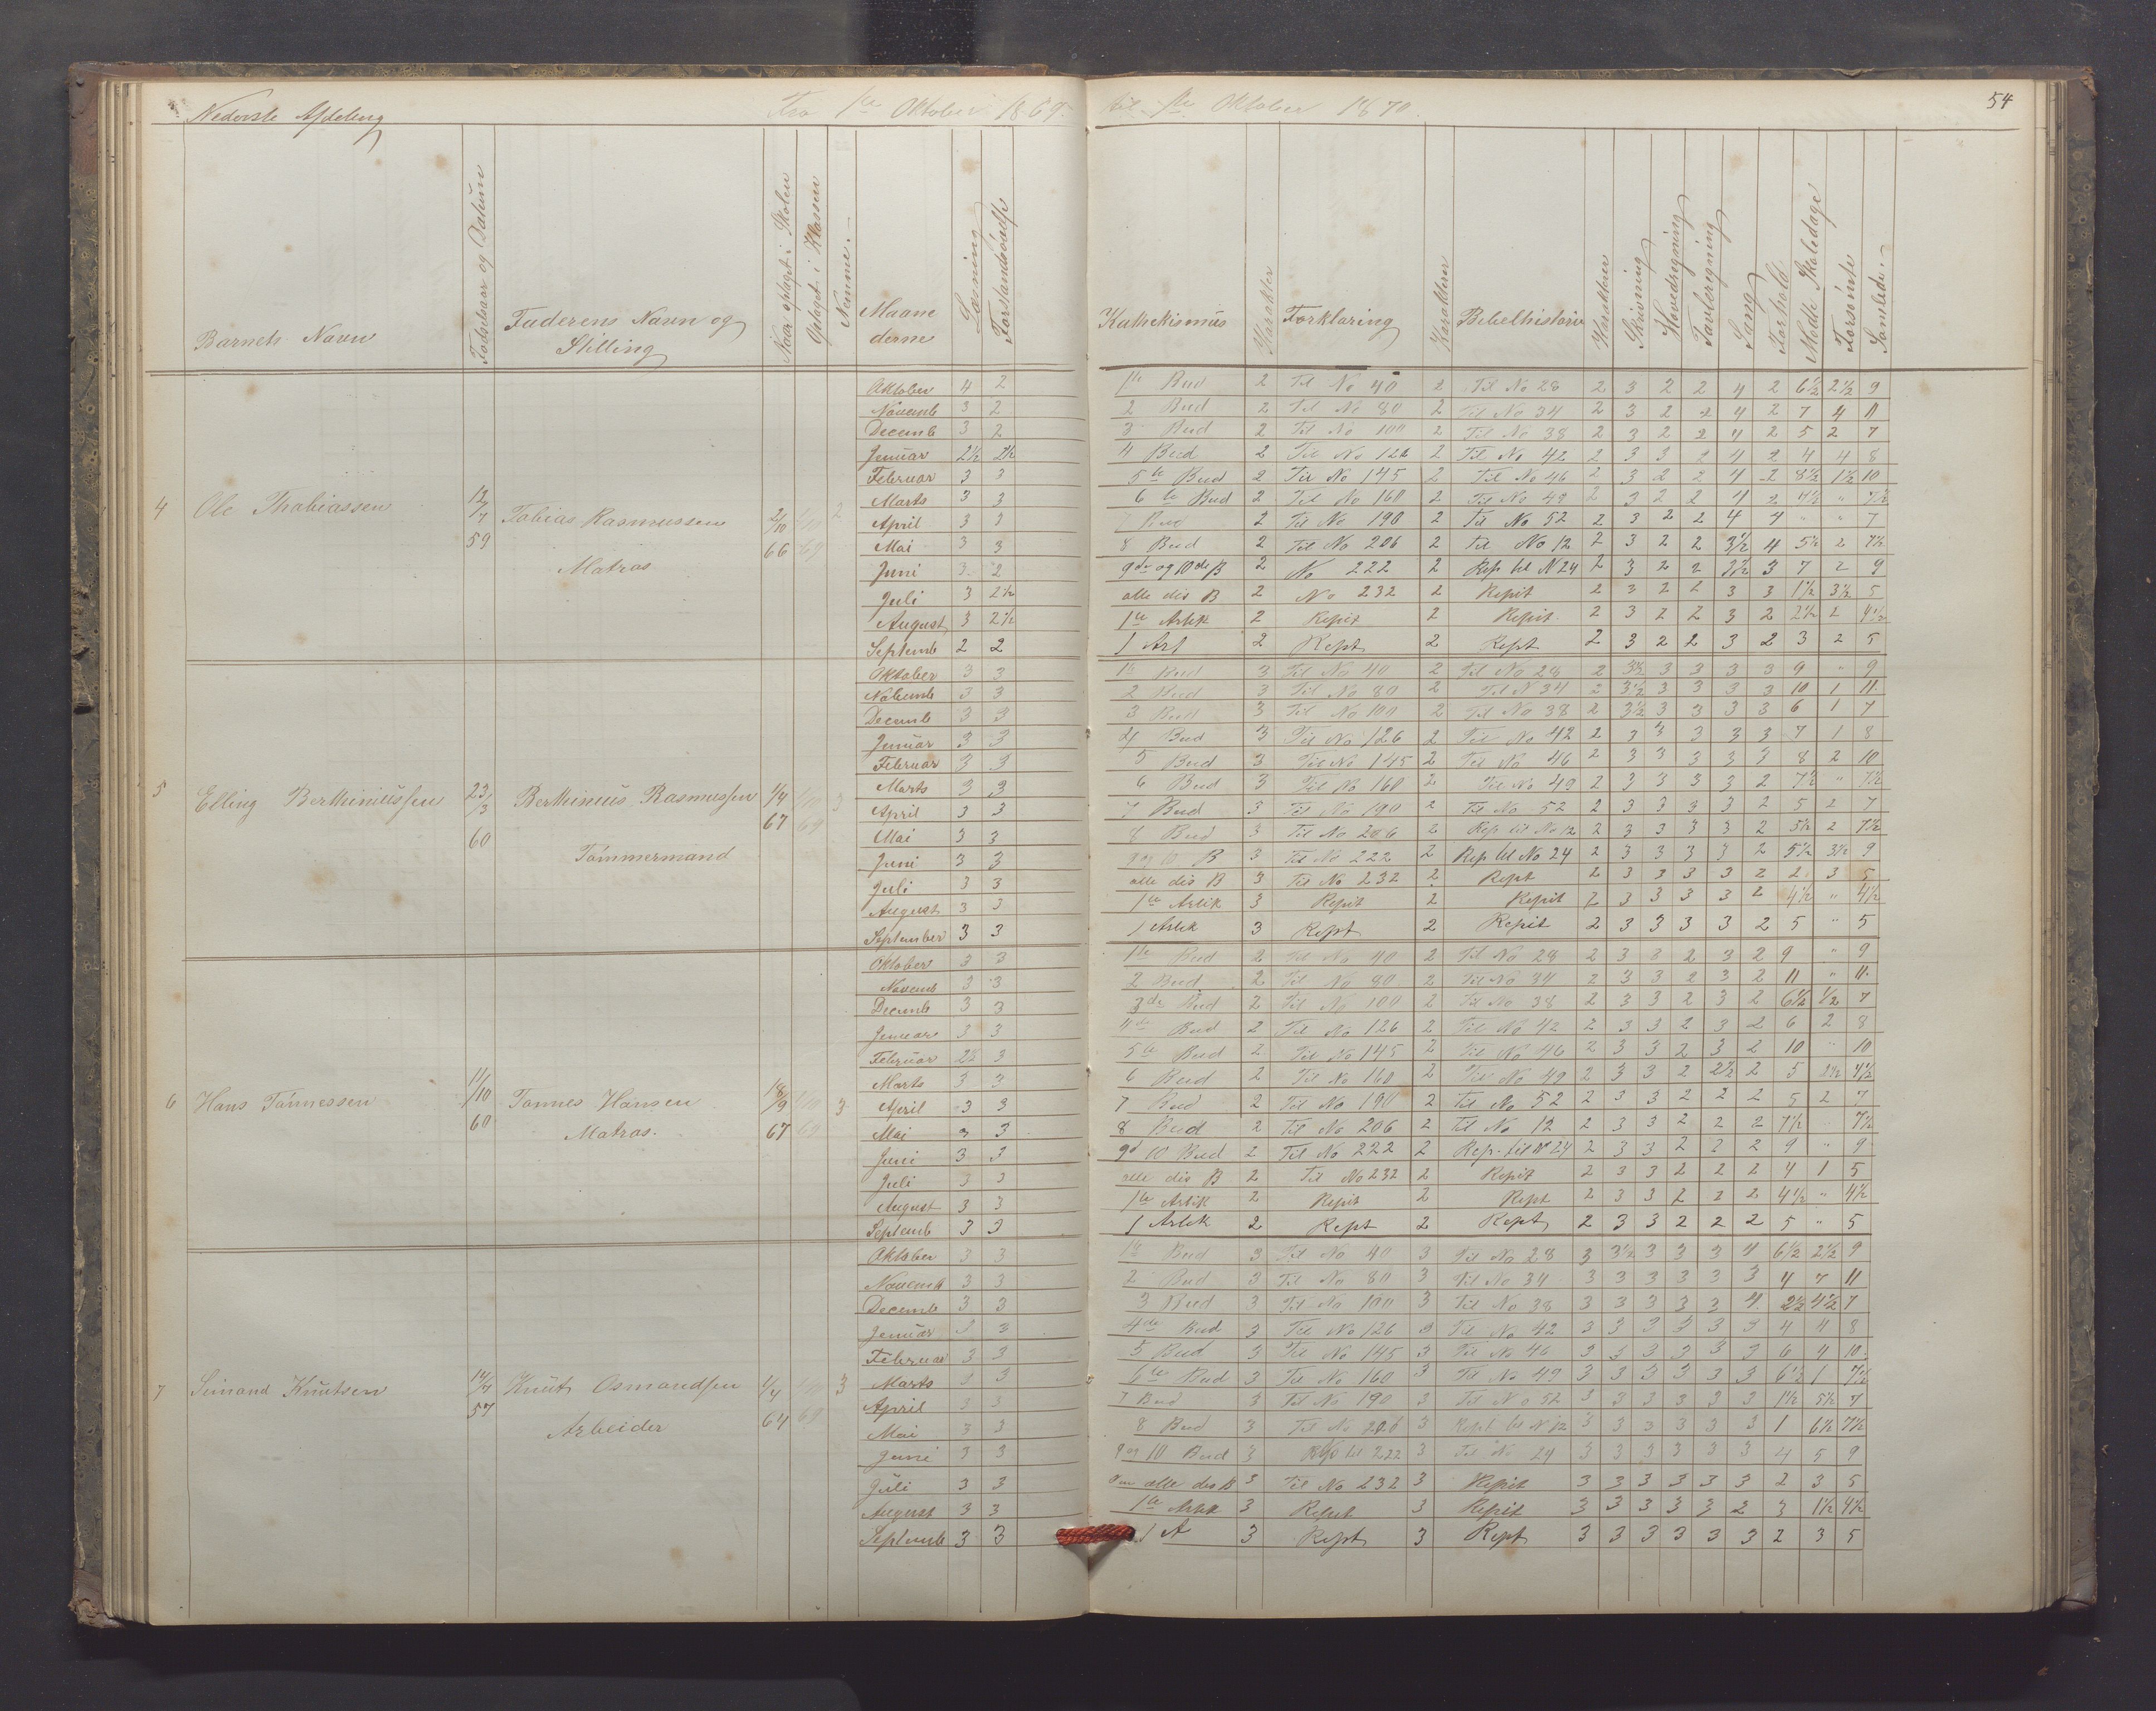 Nederste Afdeling Fra 1ste Oktober 1869. til 1ste Oktober 1870. 54
Barnets Navn Fødselsaar og Datum Faderens Navn og Stilling Naar optaget i Skolen Optaget i Klassen Nemme. Maanederne Læsning Forstandsøvelse Kathekismus Karakter Forklaring Karakter Bibelhistorie Karakter Skrivning Hovedregning Tavleregning Sang Forhold Mødte Skoledage Forsømte Samlede.
4 Ole Thobiassen 12/7 59 Tobias Rasmussen Matros 2/10 66 1/10 69 2
Oktober 4 2 1ste Bud 2 Til No 40 2 Til No 28 2 3 2 2 4 2 6½ 2½ 9
Novemb 3 2 2 Bud 2 Til No 80 2 Til No 34 2 3 2 2 4 2 7 4 11
Decemb 3 2 3 Bud 2 Til No 100 2 Til No 38 2 3 2 2 4 2 5 2 7
Januar 2½ 2½ 4 Bud 2 Til No 126 2 Til No 42 2 3 3 2 4 2 4 4 8
Februar 3 3 5te Bud 2 Til No 145 2 Til No 46 2 3 2 2 4 2 8½ 1½ 10
Marts 3 3 6te Bud 2 Til No 160 2 Til No 49 2 3 2 2 4 2 7½ " 7½
April 3 3 7 Bud 2 Til No 190 2 Til No 52 2 3 2 2 4 4 " " 7
Mai 3 3 8 Bud 2 Til No 206 2 Til No 12 2 3 2 2 3½ 4 5½ 2 7½
Juni 3 2 9de og 10de B 2 No 222 2 Rep til N 24 2 3 2 2 3½ 3 7 2 9
Juli 3 2½ alle dis B 2 No 232 2 Repit 2 3 2 2 3 3 1½ 3½ 5
August 3 2½ 1ste Artik 2 Repit 2 Repit. 2 3 2 2 3 2 2½ 2 4½
Septemb 2 2 1 Art 2 Rept 2 Rept 2 3 2 2 3 2 3 2 5
5 Elling Berthiniussen 23/3 60 Berthinius Rasmussen Tømmermand 1/4 67 1/10 69 3
Oktober 3 3 1ste Bud 3 Til No 40 2 Til No 28 2 3½ 3 3 3 3 9 " 9
Novemb 3 3 2 Bud 3 Til No 80 2 Til N 34 2 3½ 3 3 3 3 10 1 11.
Decemb 3 3 3 Bud 3 Til No 100 2 Til No 38 2 3½ 3 3 3 3 6 1 7
Januar 3 3 4 Bud 3 Til No 126 2 Til No 42 2 3 3 3 3 3 7 1 8
Februar 3 3 5 Bud 3 Til No 145 2 Til No 46 2 3 3 3 3 3 8 2 10
Marts 3 3 6 Bud 3 Til No 160 2 Til No 49 2 3 3 3 3 2 7½ " 7½
April 3 3 7 Bud 3 Til No 190 2 Til No 52 2 3 3 3 3 2 5 2 7
Mai 3 3 8 Bud 3 Til No 206 2 Rep til No 12 2 3 3 3 3 2 5½ 2 7½
Juni 3 3 9 og 10 B 3 Til No 222 2 Rep til No 24 2 3 3 3 3 2 5½ 3½ 9
Juli 3 3 alle dis B 3 Til No 232 2 Rept 2 3 3 3 3 2 2 3 5
August 3 3 1ste Artik 3 Repit 2 Repit 2 3 3 3 3 2 4½ " 4½
September 3 3 1 Artik 3 Rept 2 Repit 2 3 3 3 3 2 5 " 5
6 Hans Tønnessen 11/10 60 Tønnes Hansen Matros. 18/9 67 1/10 69 3
Oktober 3 3 1ste Bud 2 Til No 40 2 Til No 28 2 3 3 2 3 2 9 " 9
Novemb 3 3 2 Bud 2 Til No 80 2 Til No 34 2 3 3 2 3 2 11 " 11.
Decemb 3 3 3de Bud 2 Til No 100 2 Til No 38 2 3 3 2 3 2 6½ ½ 7
Januar 3 3 4de Bud 2 Til No 126 2 Til No 42 2 3 3 2 3 2 6 2 8
Februar 2½ 3 5te Bud 2 Til No 145 2 Til No 46 2 3 3 2 3 2 10 " 10
Marts 3 3 6 Bud 2 Til No 160 2 Til No 49 2 3 3 2 2½ 2 5 2½ 7½
April 3 3 7 Bud 2 Til No 190 2 Til No 52 2 3 3 2 2 2 5 2 7
Mai 3 3 8 Bud 2 Til No 206 2 Til No 12 2 3 3 2 2 2 7½ 7½
Juni 3 3 9 10 Bud 2 Til No 222 2 Rep. til N 24 2 3 3 2 2 2 9 " 9
Juli 3 3 alle dis B 2 Til No 232 2 Repit 2 3 3 2 2 2 4 1 5
August 3 3 1ste Artik 2 Repit 2 Rept 2 3 3 2 2 2 4½ " 4½
Septemb 3 3 1 Artik 2 Rept 2 Rept 2 3 3 2 2 2 5 " 5
7 Simand Knutsen 14/7 57 Knut Osmandsen Arbeider 1/4 64 1/10 69 3
Oktober 3 3 1ste Bud 3 Til No 40 3 Til No 28 3 3½ 3 3 3 4 6½ 2½ 9
Novemb 3 3 2 Bud 3 Til No 80 3 Til No 34 3 3 3 3 3 3 4 7 11
Decemb 3 3 3 Bud 3 Til No 100 3 Til No 38 3 3 3 3 3 4. 2½ 4½ 7
Januar 3 3 4de Bud 3 Til No 126 3 Til No 42 3 3 3 3 3 3 4 4 8
Februar 3 3 5 Bud 3 Til No 145 3 Til No 46 3 3 3 3 3 3 6 4 10.
Marts 3 3 6te Bud 3 Til No 160 3 Til No 49 3 3 3 3 3 3 6½ 1 7½
April 3 3 7 Bud 3 Til No 190 3 Til No 52 3 3 3 3 3 3 1½ 5½ 7
Mai 3 3 8 Bud 3 Til No 206 3 Rept til N 12 3 3 3 3 3 3 1 6½ 7½
Juni 3 3 9 og 10 Bud 3 Rep til 222 3 Til No 24 3 3 3 3 3 3 4 5 9
Juli 3 3 alle dis B 3 Til No 232 3 Repit 3 3 3 3 3 3 2 3 5
August 3 3 1ste Artik 3 Repit 3 Repit 3 3 3 3 3 2 3 1½ 4½
Septemb 3 3 1 A 3 Rept 3 Rept 3 3 3 3 3 3 2 3 5